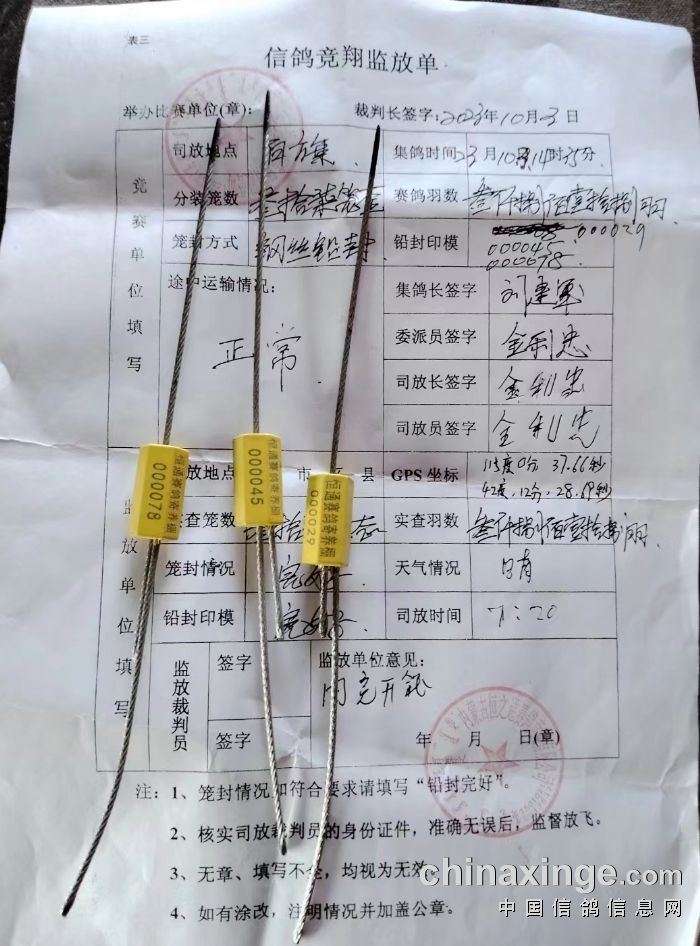 表三
信鸽竞翔监放单
举办比赛单位(章): 裁判长签字: 2023年10月23日
竞赛单位填写
司放地点 集鸽时间 23月10 14时35分
分装笼数 赛鸽羽数 叁仟捌佰壹拾捌羽
笼封方式 钢丝铅封 铅封印模 000029
000045
000078
途中运输情况: 集鸽长签字 刘建军
正常 委派员签字 金利忠
司放长签字 金利忠
司放员签字 金利忠
监放单位填写
放地点 市 县 GPS 坐标 115度0分 37.66秒
42度.12分.28.68秒
实查笼数 实查羽数 叁仟捌佰壹拾捌羽
笼封情况 完好 天气情况 晴
铅封印模 完好 司放时间 7:20
监放裁判员
签字 监放单位意见:
同意开笼
签字 年 月 日(章)
恒通赛鸽寄养棚
000078
恒通赛鸽寄养棚
000045
恒通赛鸽寄养棚
000029
注: 1、笼封情况如符合要求请填写“铅封完好”。
2、核实司放裁判员的身份证件，准确无误后，监督放飞。
3、无章、填写不全，均视为无效
4、如有涂改，注明情况并加盖公章。
chinaxinge.com
中国信鸽信息网